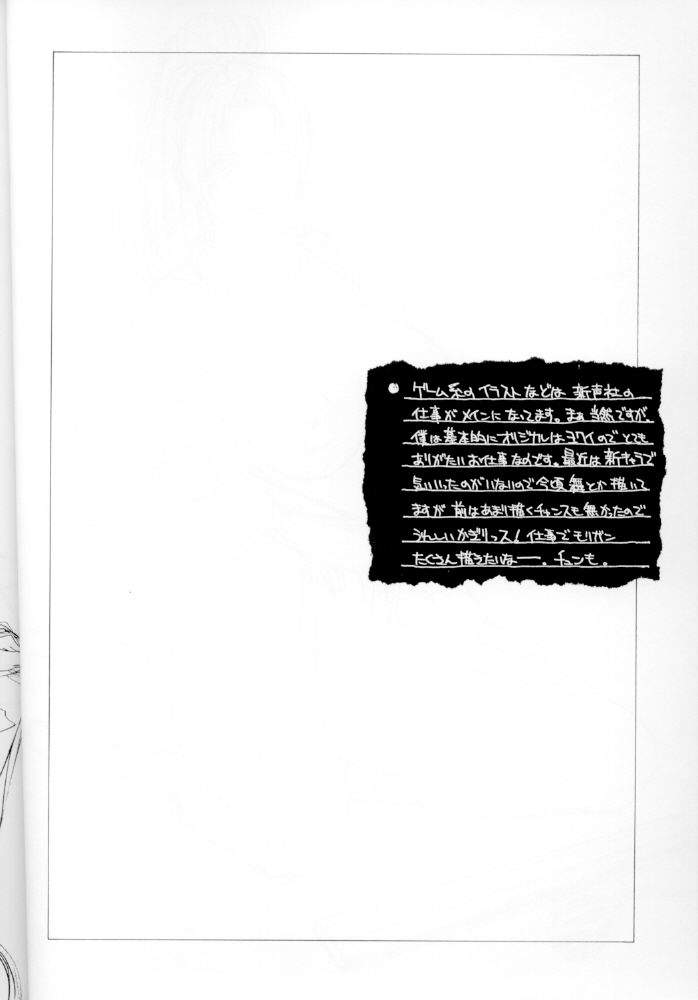 ●ゲーム系のイラストなどは 新声社の
仕事がメインになってます。まぁ当然ですが、
僕は基本的にオリジナルはヨワイのでとても
ありがたいお仕事なのです。最近は新キャラで
気にいったのがいないので今頃舞とか描いて
ますが 前はあまり描くチャンスも無かったので
うれしいかぎりっス!仕事でモリガン
たくさん描きたいなー。チュンも。